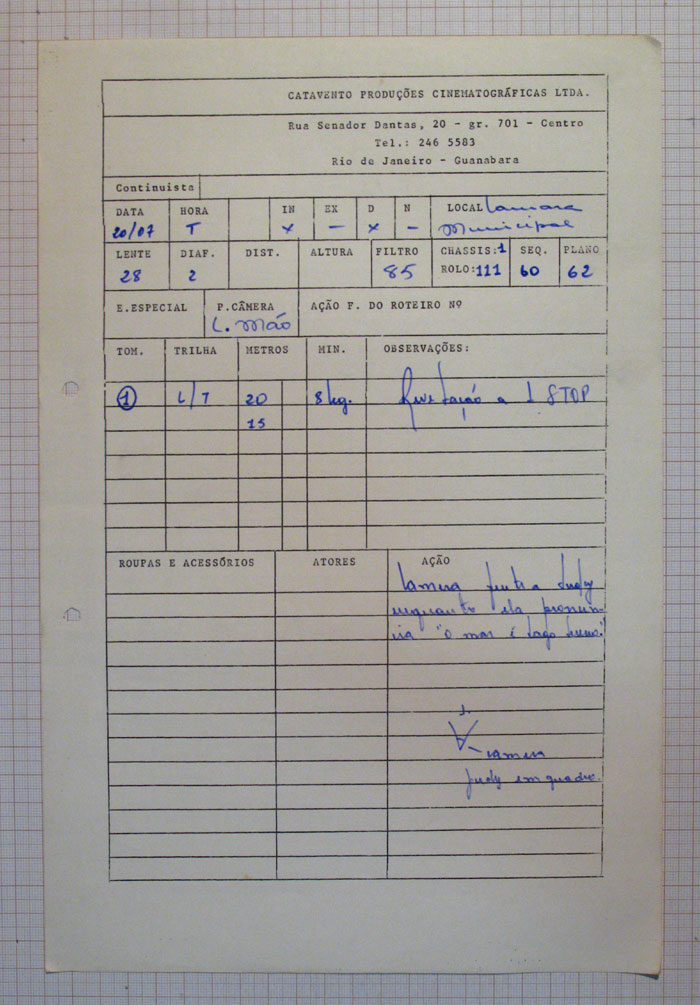 CATAVENTO PRODUÇÕES CINEMATOGRÁFICAS LTDA.
Rua Senador Dantas, 20 - gr. 701 - Centro
Tel.: 246 5583
Rio de Janeiro - Guanabara
Continuista
DATA HORA IN EX D N LOCAL Camara
20/07 T x - x - Municipal
LENTE DIAF. DIST. ALTURA FILTRO CHASSIS: 1 SEQ. PLANO
28 2 85 ROLO: 111 60 62
E.ESPECIAL P.CÂMERA AÇÃO F. DO ROTEIRO Nº
C. Mão
TOM. TRILHA METROS MIN. OBSERVAÇÕES:
1 20 a 1 STOP
15
ROUPAS E ACESSÓRIOS ATORES AÇÃO
Camera Judy
enquanto ela pronun-
cia "o mar é
J.
camera
Judy em quadro.